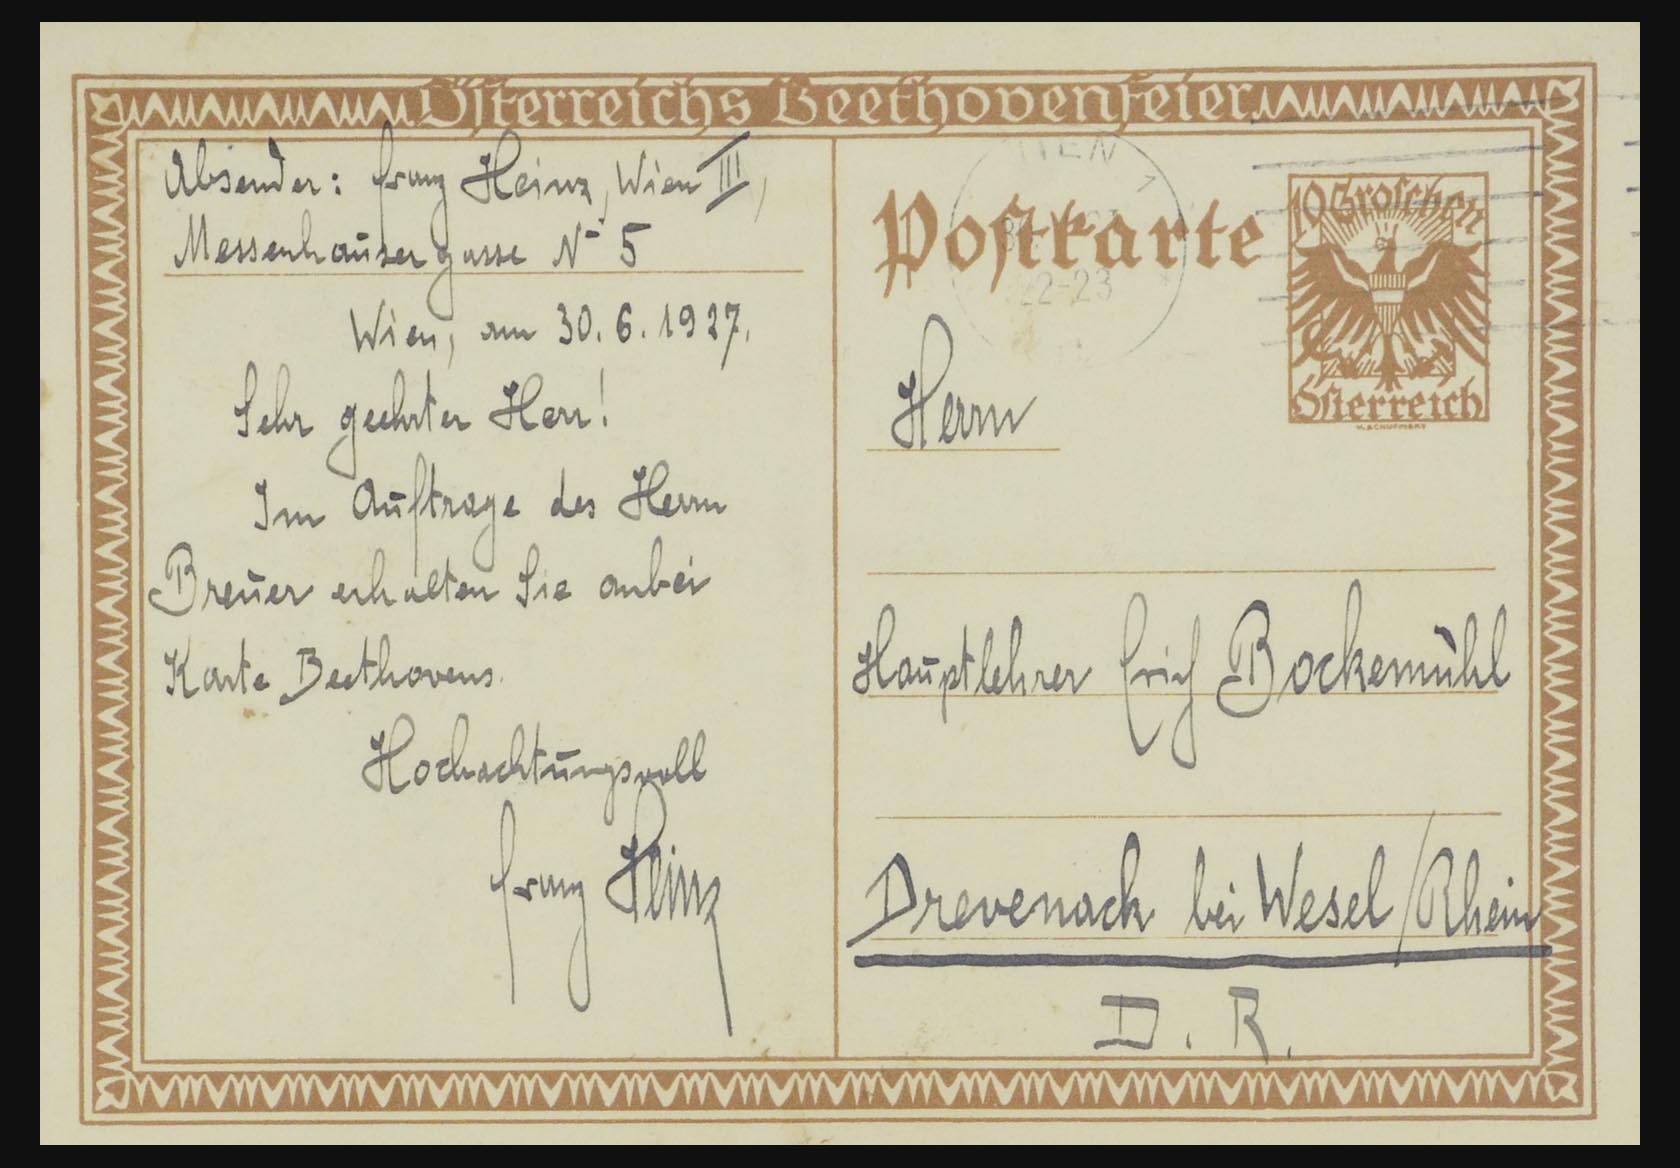 Österreichs Beethovenfeier
Absender: Franz Heinz, Wien III,
Messenhausergasse No 5
Wien, am 30. 6. 1927.
Sehr geehrter Herr!
Im Auftrage des Herrn
Breuer erhalten Sie anbei
Karte Beethovens.
Hochachtungsvoll
Franz Heinz
Postkarte
WIEN
22-23
10 Groschen
Österreich
Herrn
Hauptlehrer Erich Bockemühl
Drevenack bei Wesel/Rhein
D. R.